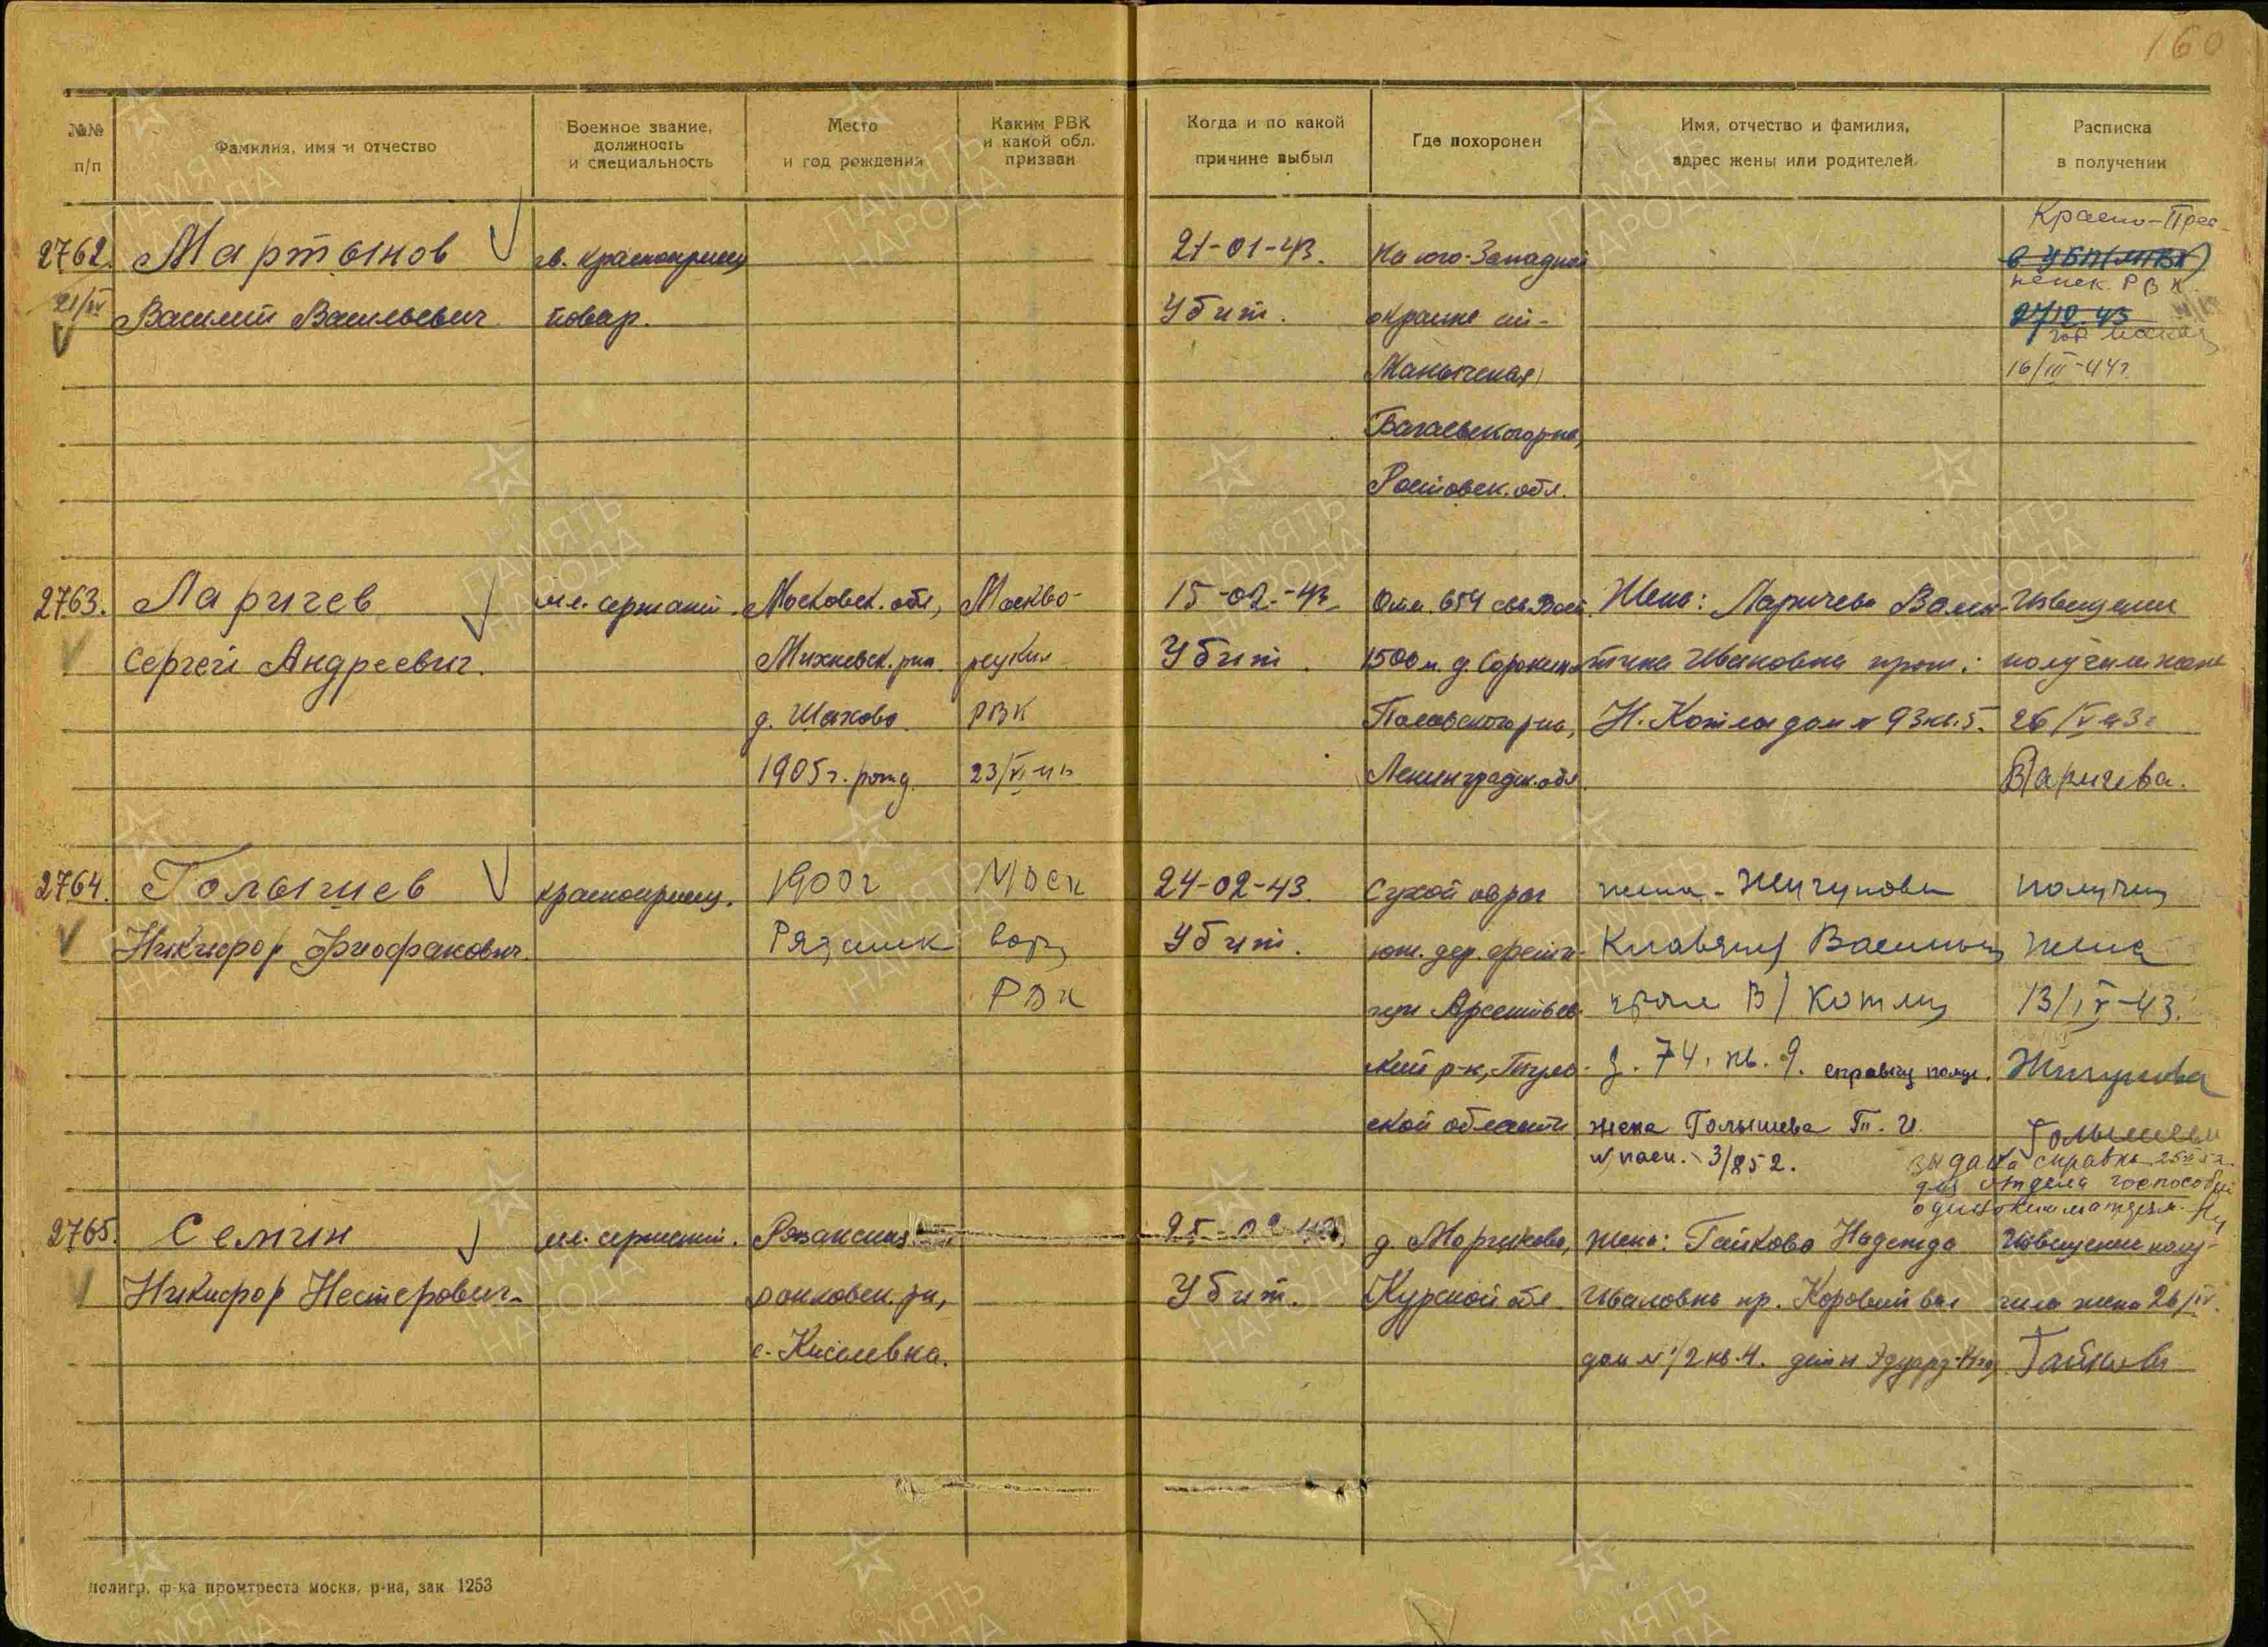 160
№№ п/п
Фамилия, имя и отчество
Военное звание, должность и специальность
Место и год рождения
Каким РВК и какой обл. призван
Когда и по какой причине выбыл
Где похоронен
Имя, отчество и фамилия, адрес жены или родителей.
Расписка в получении
2762. Мартынов
Василий Васильевич
гв. красноармеец
повар.
21-01-43.
Убит.
На юго-Западной
окраине
Манычская
Багаевского р-на,
Ростовск. обл.
Красно-Прес-
ненск. РВК.
16/III-44г.
2763. Ларичев
Сергей Андреевич.
мл. сержант.
Московск. обл,
Михневск. р-на
д. Шахово.
1905 г. рожд.
Москво-
рецким
РВК
23/VI-41г
15-02-43
Убит.
1500 м. д. Сорокино
Ленинградск. обл.
Жена: Ларичева Вален-
тина Ивановна прож:
Н. Котлы дом № 93 кв. 5.
Извещение
получила жена
26/IV 43г
Ларичева.
2764. Голышев
Никифор Фиофанович.
красноармеец.
1900 г
Моск
ворец
РВК
24-02-43.
Убит.
Сухой овраг
юж. дер.
Арсеньев-
ский р-н, Туль-
ской области
жена - Жигунова
В/Котлы
д. 74. кв. 9. справку получ.
жена Голышева П. И.
3/852.
получил
жена
13/IV-43.
Жигунова
Голышева
выдана справка
для отдела госпособий
одиноким матерям.
2765. Семин
Никифор Нестерович.
мл. сержант.
Рязанская
с. Киселевка.
Убит.
Курской обл.
Жена: Гайкова Надежда
Ивановна пр. Коровий вал
дом № 1/2 кв. 4.
Извещение полу-
чила жена 26/IV.
Гайкова
полигр. ф-ка промтреста москв. р-на, зак 1253
ПАМЯТЬ НАРОДА